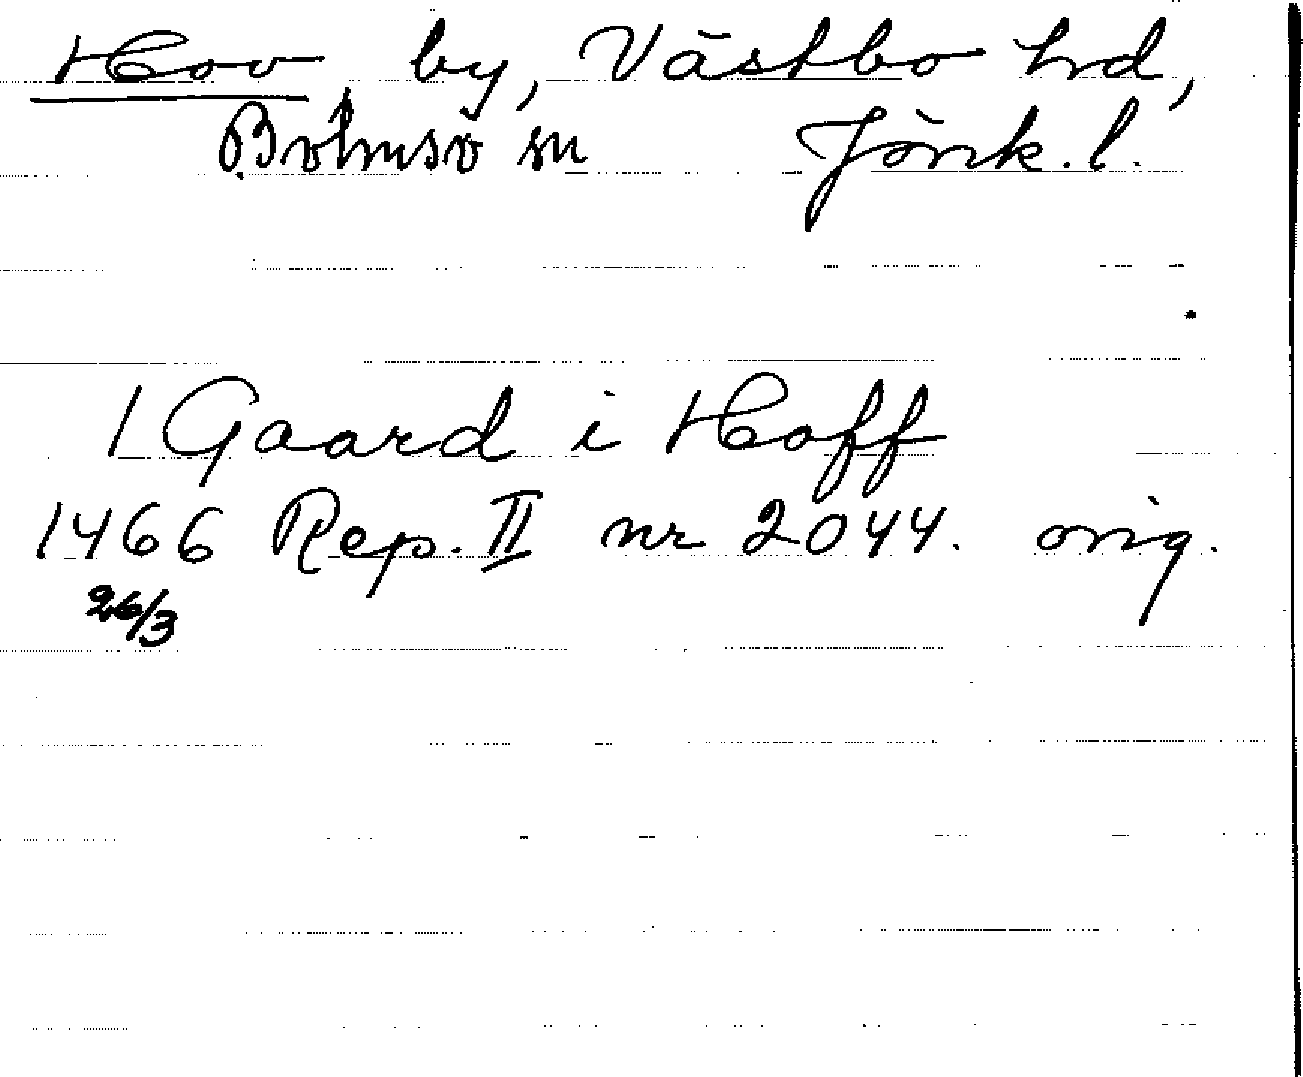 Hov by, Västbo hrd,
Bolmsö sn Jönk. l.
1 Gaard i Hoff
1466 Rep. II nr 2044. orig.
26/3